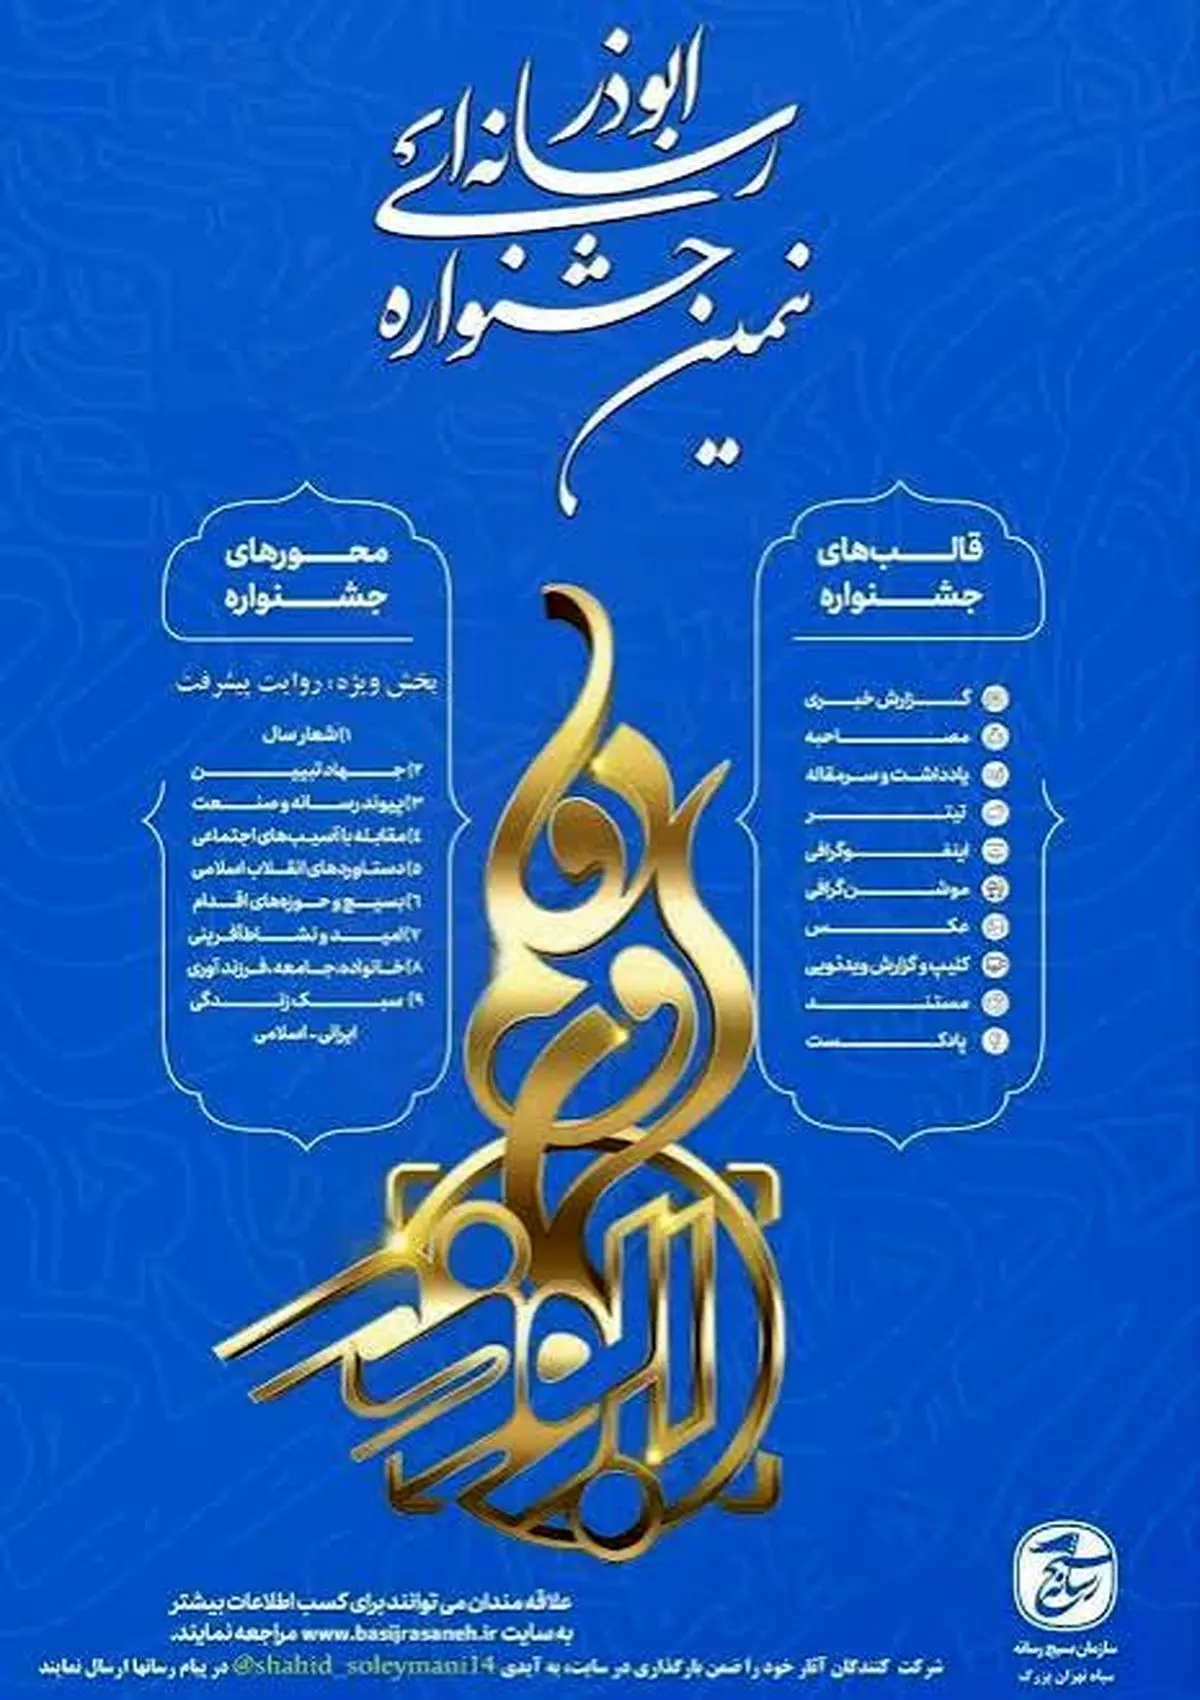 نهمین جشنواره
رسانه‌ای
ابوذر
قالب‌های
جشنواره
گزارش خبری
مصاحبه
یادداشت و سرمقاله
تیتر
اینفوگرافی
موشن‌گرافی
عکس
کلیپ و گزارش ویدئویی
مستند
پادکست
محورهای
جشنواره
بخش ویژه: روایت پیشرفت
۱) شعار سال
۲) جهاد تبیین
۳) پیوند رسانه و صنعت
۴) مقابله با آسیب‌های اجتماعی
۵) دستاوردهای انقلاب اسلامی
۶) بسیج و حوزه‌های اقدام
۷) امید و نشاط‌آفرینی
۸) خانواده، جامعه، فرزندآوری
۹) سبک زندگی
ایرانی - اسلامی
علاقه مندان می توانند برای کسب اطلاعات بیشتر
به سایت www.basijrasaneh.ir مراجعه نمایند.
شرکت کنندگان آثار خود را ضمن بارگذاری در سایت، به آیدی @shahid_soleymani14 در پیام رسانها ارسال نمایند
بسیج رسانه
سازمان بسیج رسانه
سپاه تهران بزرگ